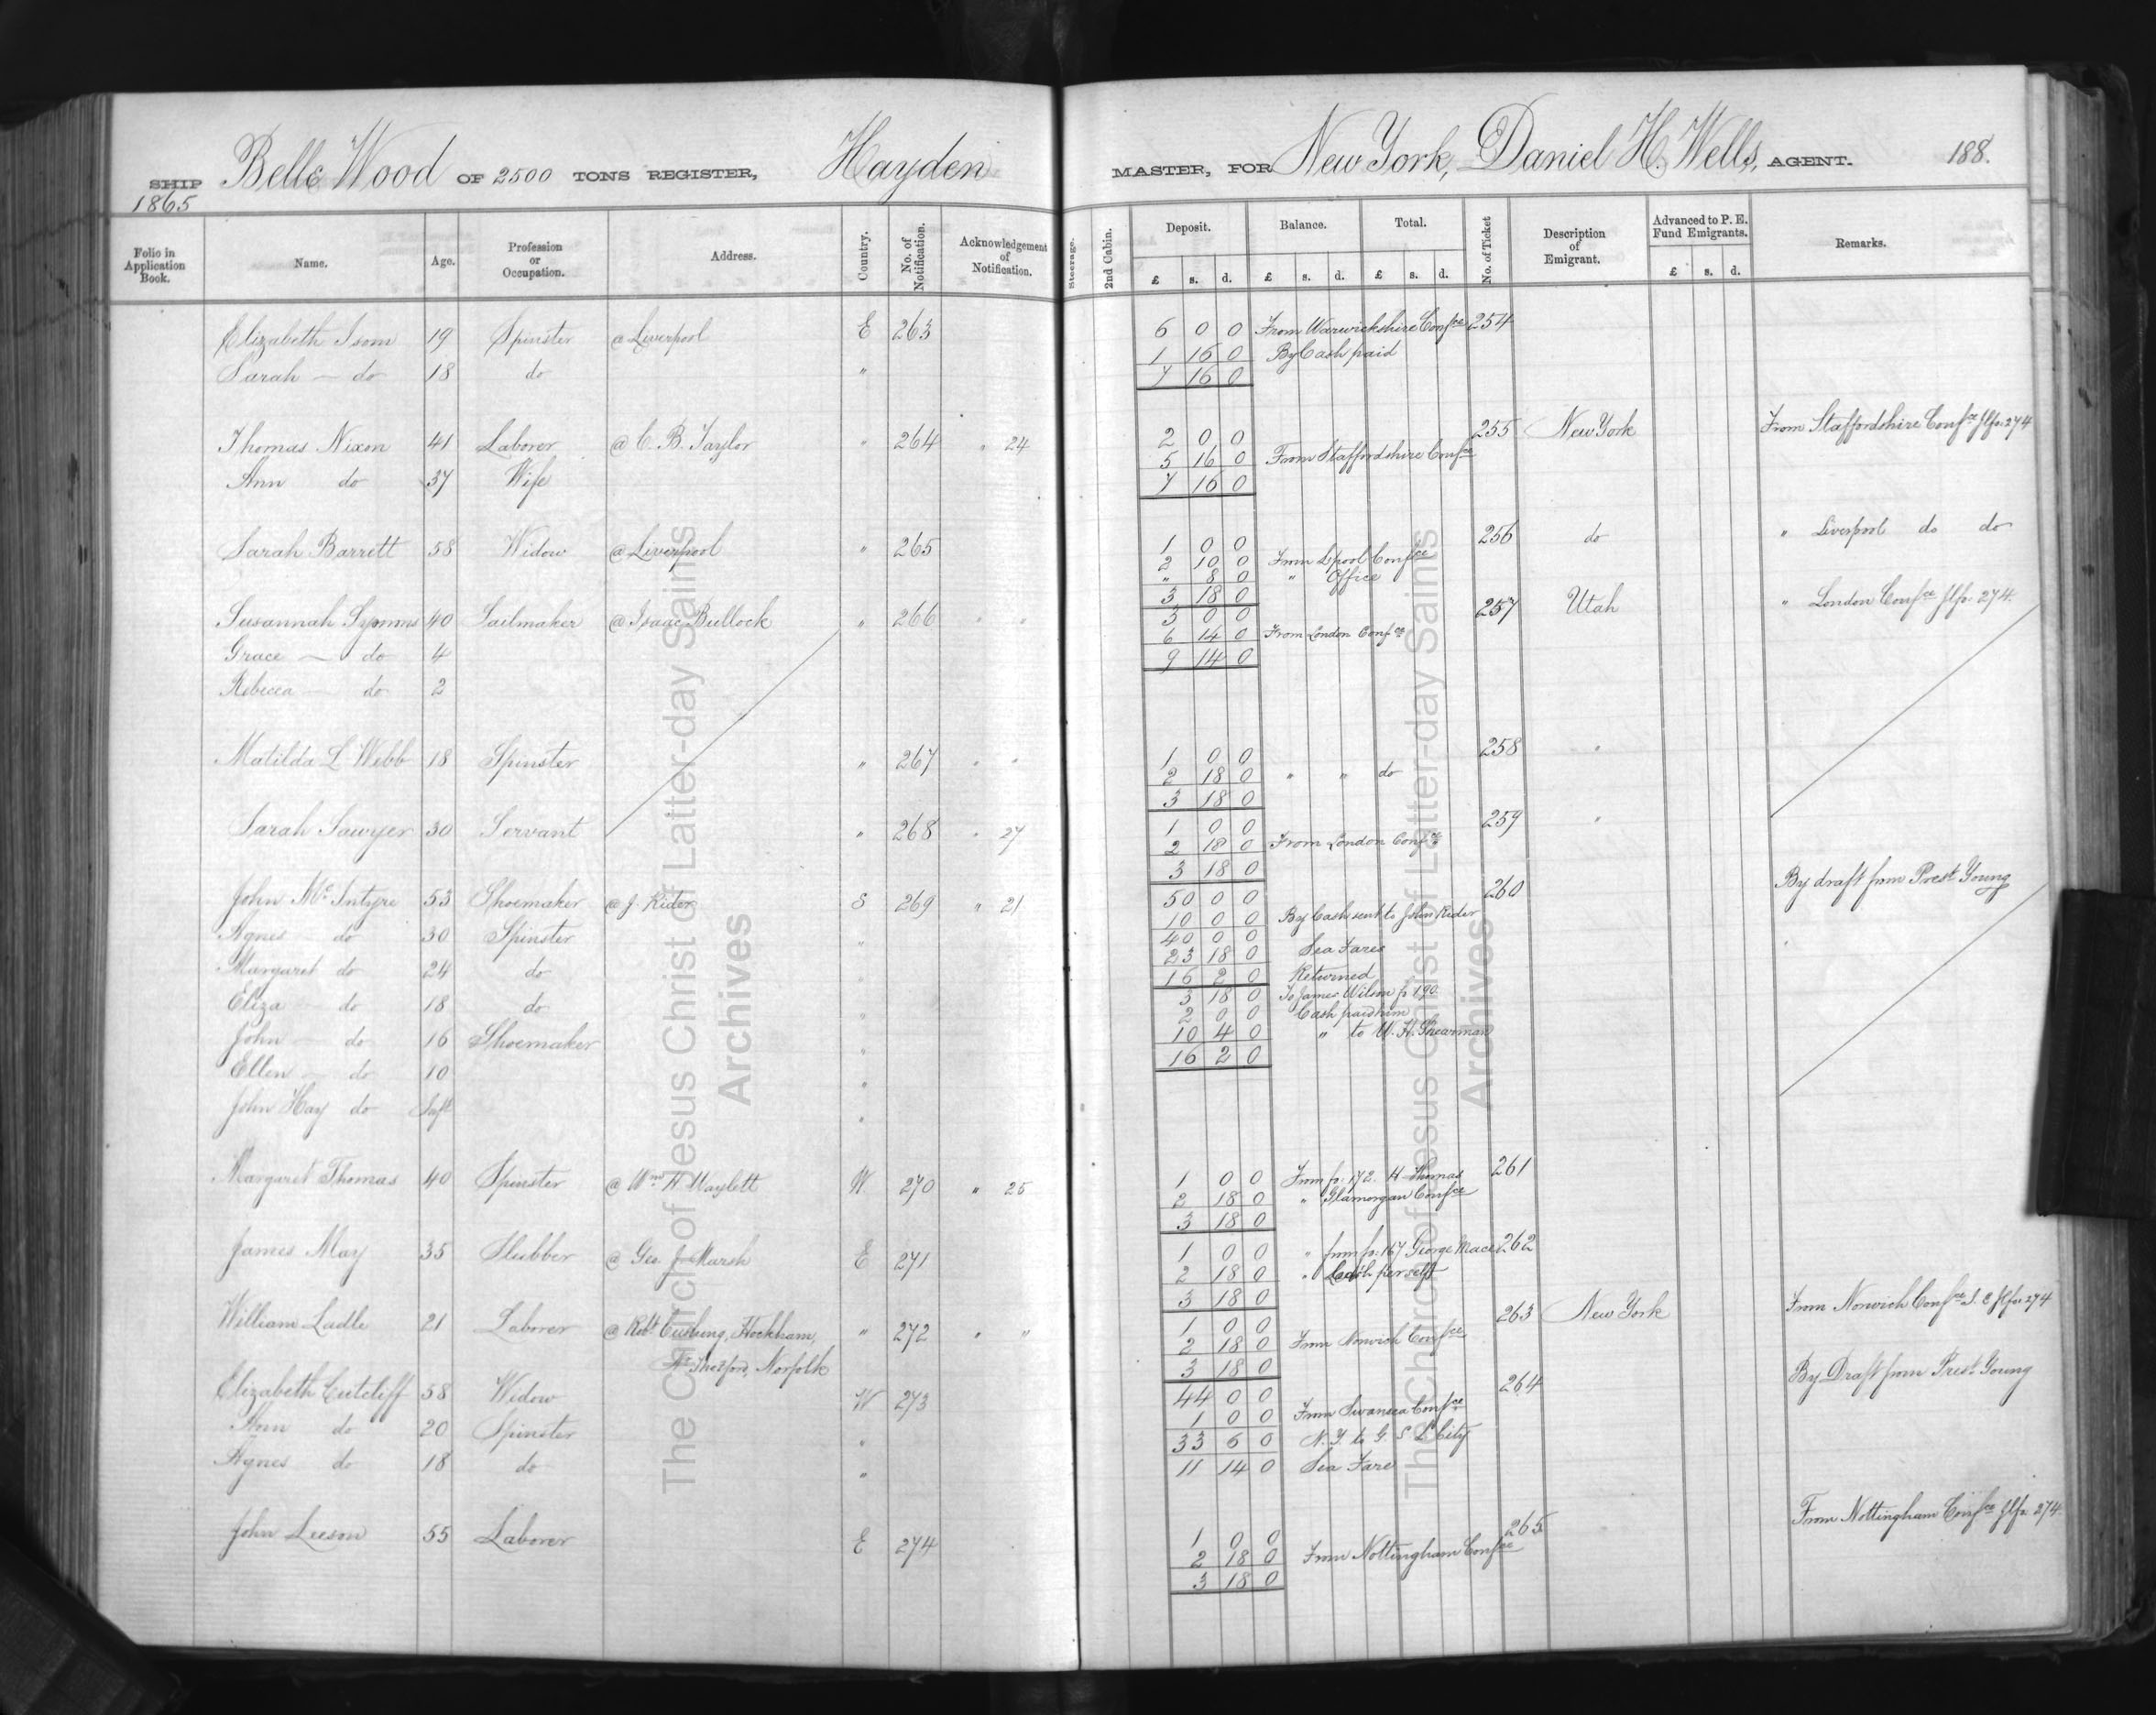 SHIP Belle Wood OF 2500 TONS REGISTER, Hayden MASTER, FOR New York, Daniel H. Wells, AGENT. 188.
1865
Folio in Application Book. Name. Age. Profession or Occupation. Address. Country. No. of Notification. Acknowledgement of Notification. Steerage. 2nd Cabin. Deposit. Balance. Total. No. of Ticket Description of Emigrant. Advanced to P. E. Fund Emigrants. Remarks.
£ s. d. £ s. d. £ s. d. £ s. d.
Elizabeth Isom 19 Spinster @ Liverpool E 263 6 0 0 From Warwickshire Confce 254
1 16 0 By Cash paid
Sarah — do 18 do " 7 16 0
Thomas Nixon 41 Laborer @ C. B. Taylor " 264 " 24 2 0 0 255 New York From Staffordshire Confce 274
5 16 0 From Staffordshire Confce
Ann do 37 Wife 7 16 0
Sarah Barrett 58 Widow @ Liverpool " 265 1 0 0 256 do " Liverpool do do
2 10 0 From Lpool Confce
" 8 0 " Office
3 18 0
Susannah Symms 40 Sailmaker @ Isaac Bullock " 266 " " 3 0 0 257 Utah " London Confce 274.
6 14 0 From London Confce
Grace — do 4 9 14 0
Rebecca — do 2
Matilda L Webb 18 Spinster " 267 " " 1 0 0 258 "
2 18 0 " " do
3 18 0
Sarah Sawyer 30 Servant " 268 " 27 1 0 0 259 "
2 18 0 From London Confce
3 18 0
John McIntyre 53 Shoemaker @ J. Rider S 269 " 21 50 0 0 260 By draft from Prest Young
10 0 0 By Cash sent to John Rider
Agnes do 30 Spinster " 40 0 0
23 18 0 Sea Fares
Margaret do 24 do " 16 2 0 Returned
3 18 0 To James Wilson p 190
Eliza — do 18 do " 2 0 0 Cash paid him
John — do 16 Shoemaker " 10 4 0 " to W. H. Shearman
16 2 0
Ellen — do 10 "
John Hay do Inft "
Margaret Thomas 40 Spinster @ Wm H Waylett W 270 " 25 1 0 0 From p. 172. H Thomas 261
2 18 0 " Glamorgan Confce
3 18 0
James May 35 Slubber @ Geo. J. Marsh E 271 1 0 0 " from p. 167 George Mace 262
2 18 0 " Cash per self
3 18 0
William Ladle 21 Laborer @ Robt Cushing, Hockham, " 272 " " 1 0 0 263 New York From Norwich Confce 274
Nr Thetford, Norfolk 2 18 0 From Norwich Confce
3 18 0
Elizabeth Cutcliff 58 Widow W 273 44 0 0 264 By Draft from Prest Young
1 0 0 From Swansea Confce
Ann do 20 Spinster " 33 6 0 N. Y. to G. S. L. City
Agnes do 18 do " 11 14 0 Sea Fare
John Leeson 55 Laborer E 274 1 0 0 265 From Nottingham Confce 274.
2 18 0 From Nottingham Confce
3 18 0
The Church of Jesus Christ of Latter-day Saints
Archives
The Church of Jesus Christ of Latter-day Saints
Archives